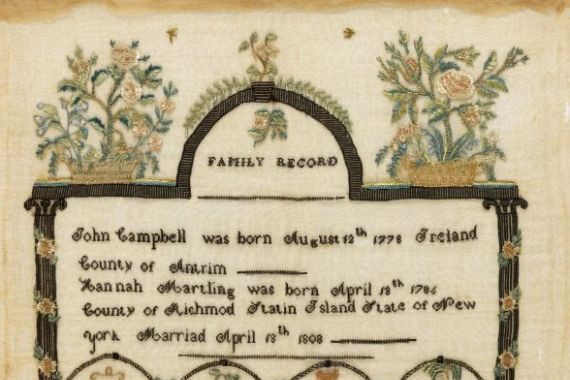 FAMILY RECORD
John Campbell was born August 12th 1778 Ireland
County of Antrim
Hannah Martling was born April 18th 1786
County of Richmod Statin Island State of New
york Marriad April 13th 1808